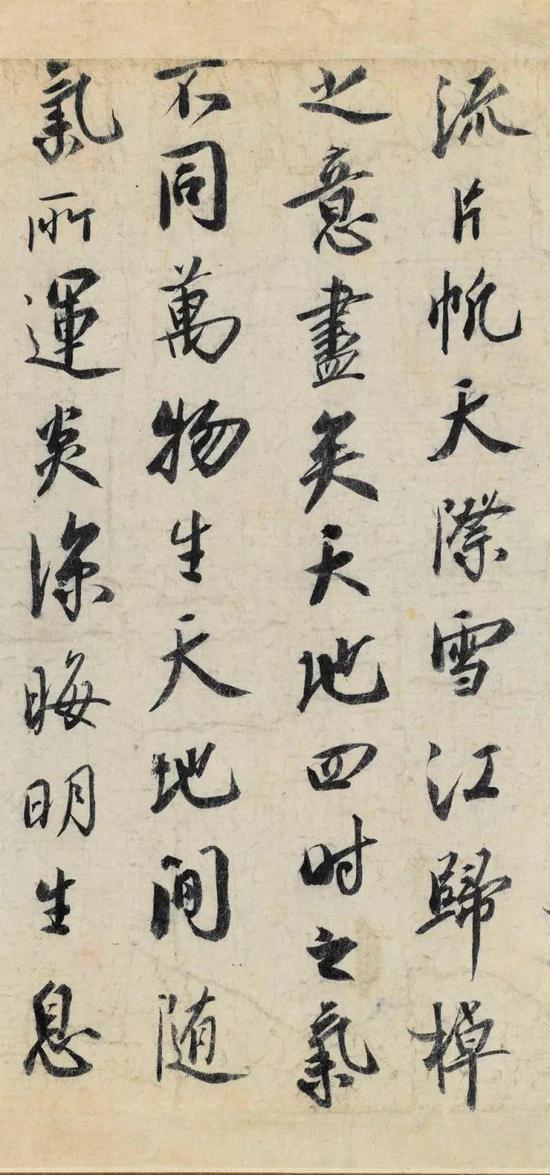 流片帆天際雪江歸棹
之意盡矣天地四时之氣
不同萬物生天地間随
氣所運炎涼晦明生息